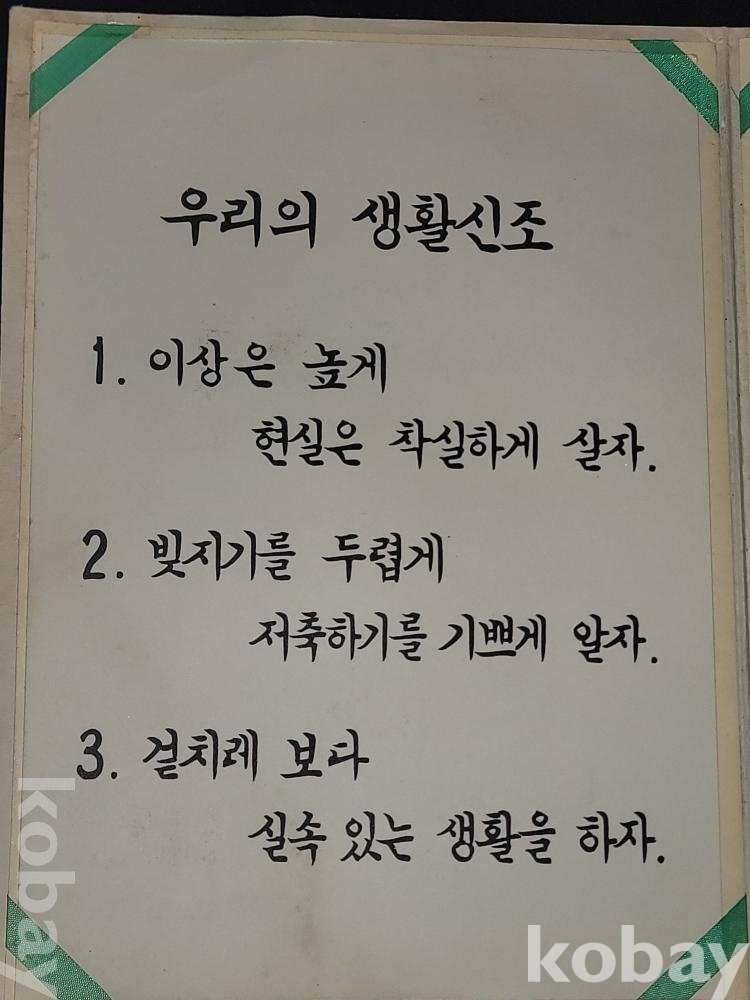 우리의 생활신조
1. 이상은 높게
현실은 착실하게 살자.
2. 빚지기를 두렵게
저축하기를 기쁘게 알자.
3. 겉치레 보다
실속 있는 생활을 하자.
kobay
kobay